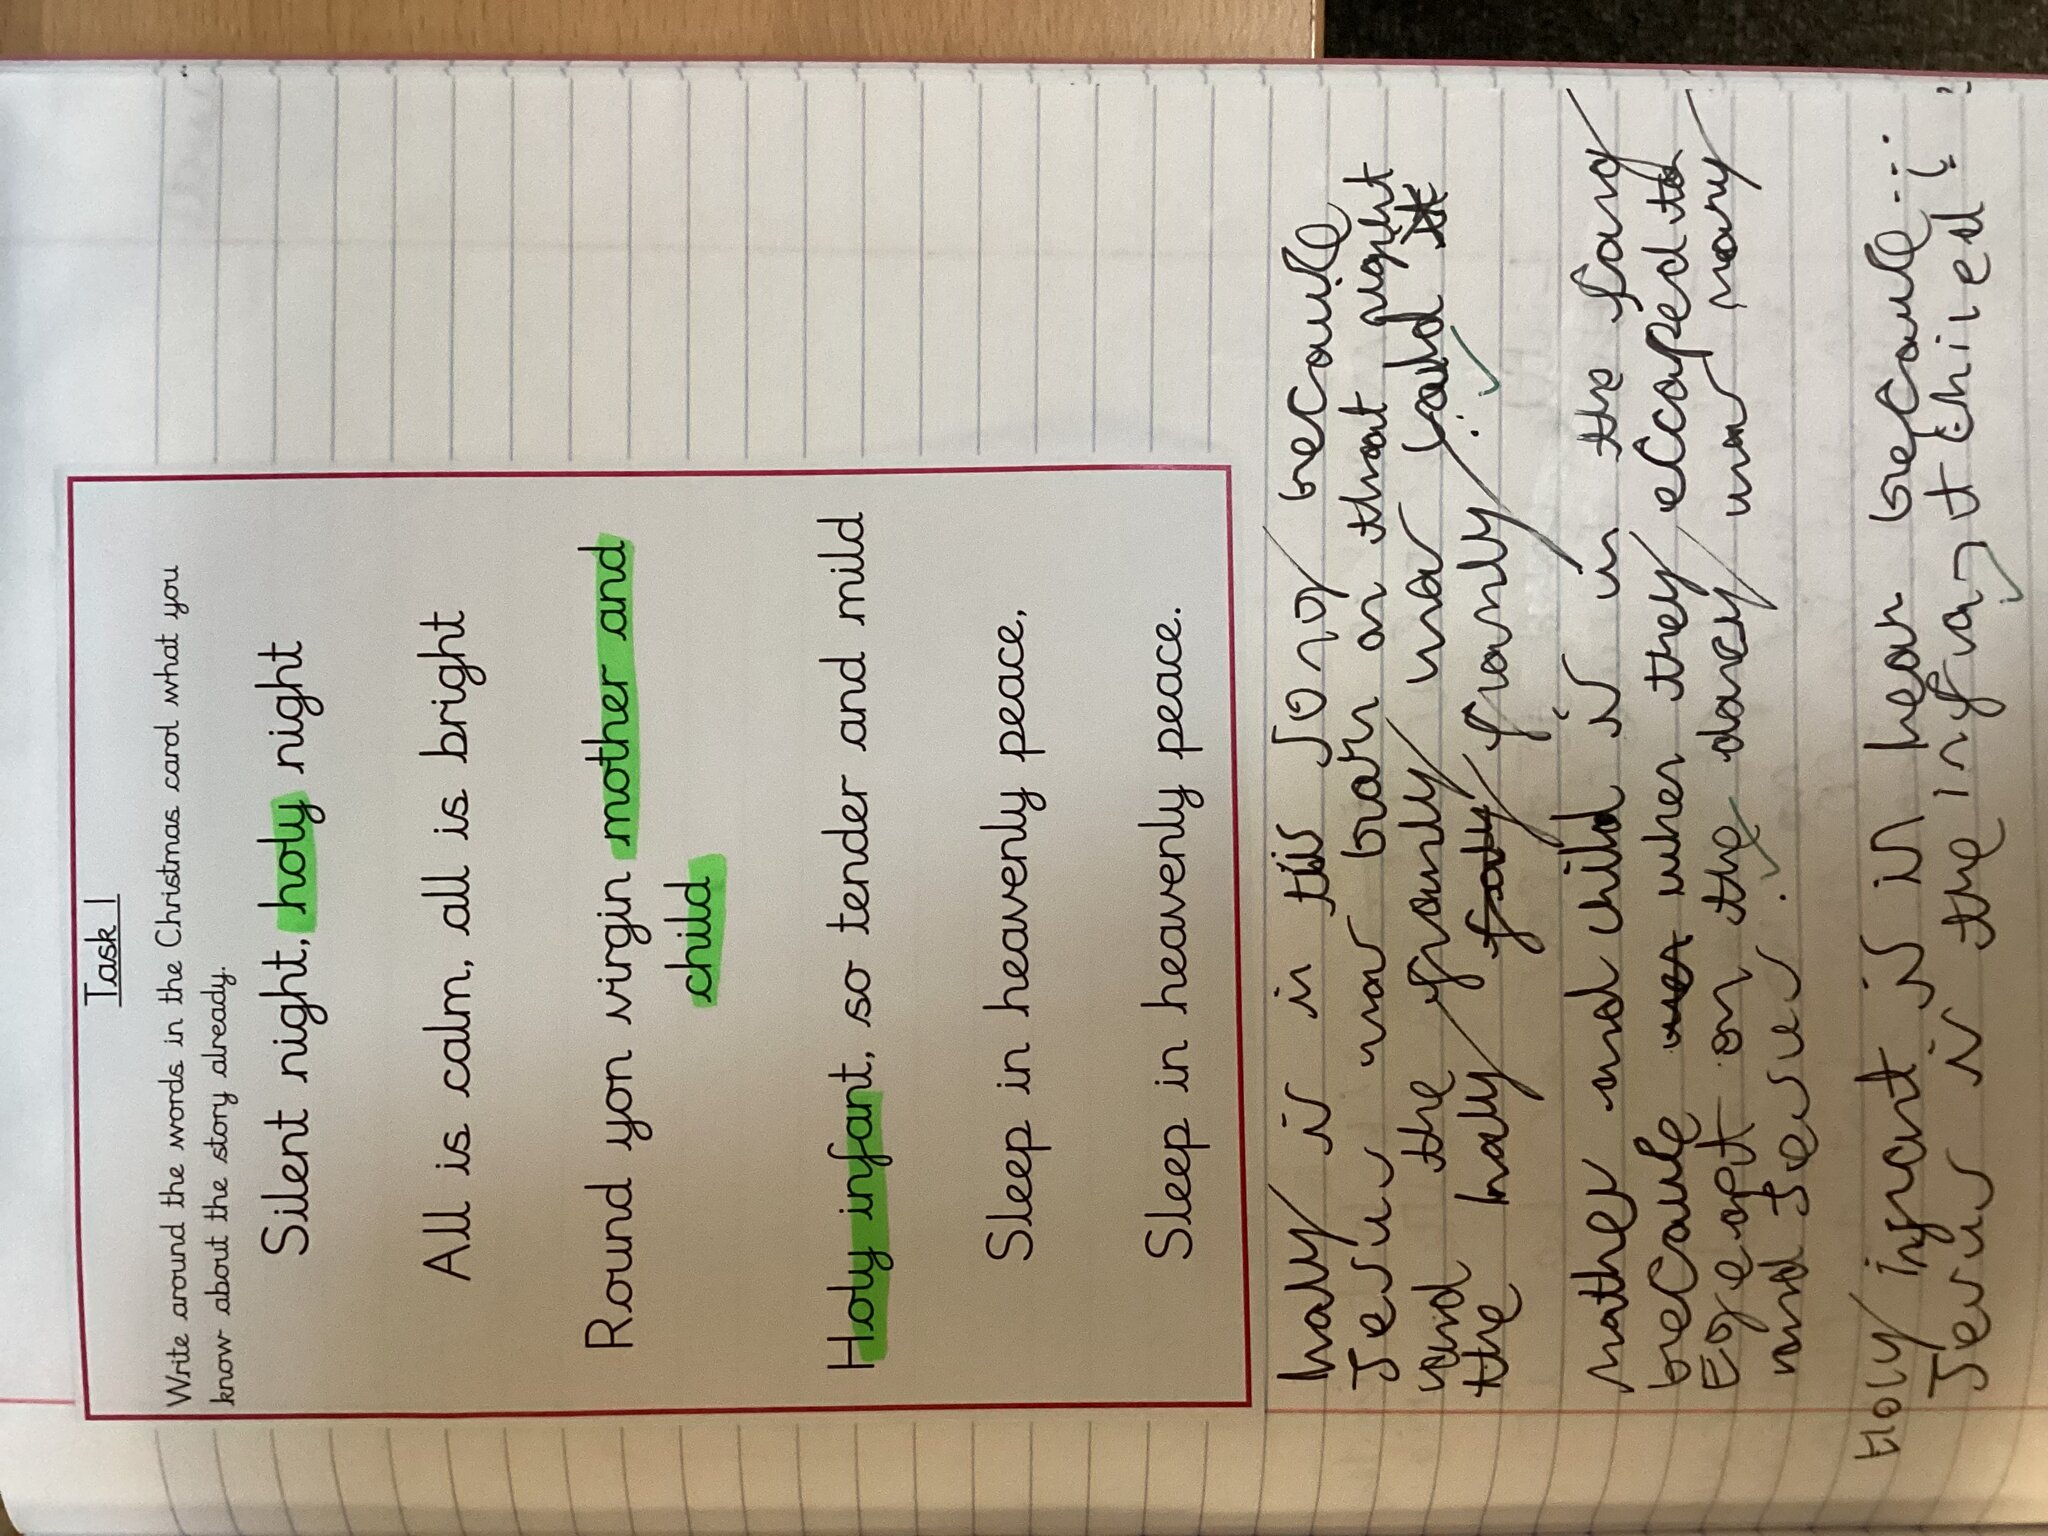 Task 1
Write around the words in the Christmas carol what you
know about the story already.
Silent night, holy night
All is calm, all is bright
Round yon virgin mother and
child
Holy infant, so tender and mild
Sleep in heavenly peace,
Sleep in heavenly peace.
holy is in this song because
Jesus was born on that night
and the framly was called it
the holy framly.
mother and child is in the song
because when they escaped to
Egeapt on the doncy was mary
and Jesus.
Holy infant is in hear because...
Jesus is the infant chiled